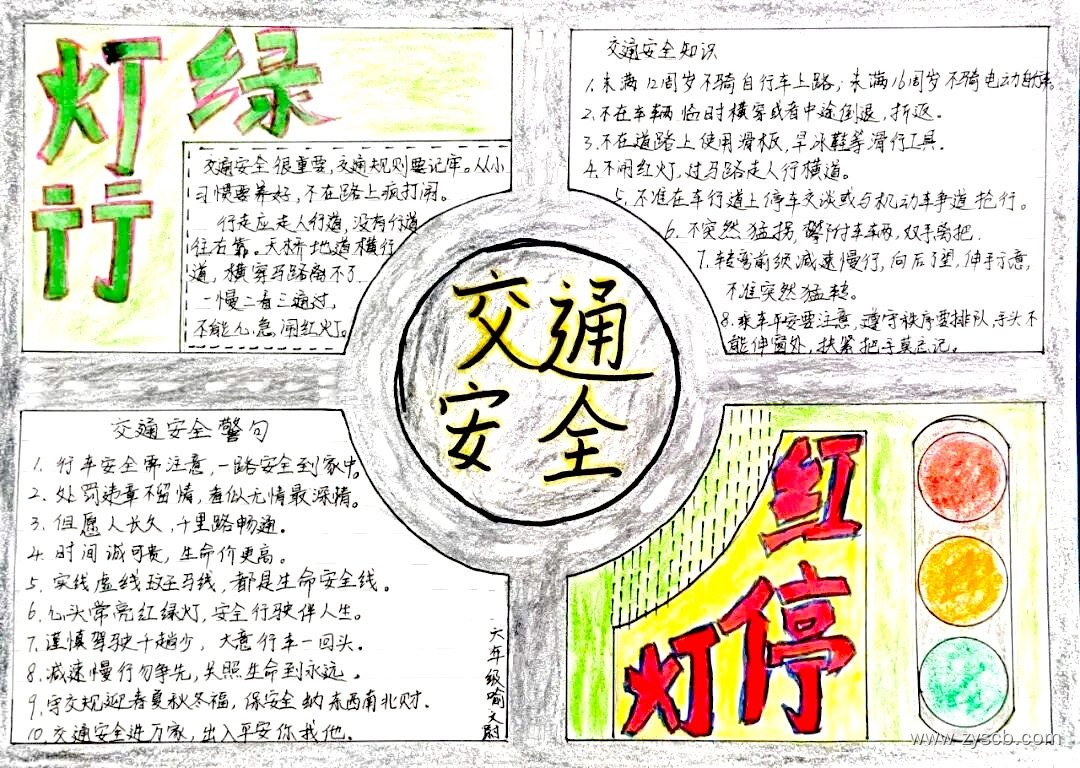 绿
灯
行
交通安全很重要,交通规则要记牢。从小
习惯要养好,不在路上疯打闹。
行走应走人行道,没有行道
往右靠。天桥地道横行
道,横穿马路离不了
一慢二看三通过,
不能心急闯红灯。
交通安全知识
1.未满12周岁不骑自行车上路;未满16周岁不骑电动自行车。
2.不在车辆临时横穿或者中途倒退,折返。
3.不在道路上使用滑板,旱冰鞋等滑行工具。
4.不闯红灯,过马路走人行横道。
5.不准在车行道上停车交谈或与机动车争道抢行。
6.不突然猛拐,攀附车辆,双手离把.
7.转弯前须减速慢行,向后了望,伸手示意,
不准突然猛转。
8.乘车平安要注意,遵守秩序要排队,手头不
能伸窗外,扶紧把手莫忘记。
交通
安全
交通安全警句
1.行车安全常注意,一路安全到家中。
2.处罚违章不留情,看似无情最深情。
3.但愿人长久,千里路畅通。
4.时间诚可贵,生命价更高。
5.实线虚线斑马线,都是生命安全线。
6.心头常亮红绿灯,安全行驶伴人生。
7.谨慎驾驶千趟少,大意行车一回头。
8.减速慢行勿争先,关照生命到永远。
9.守交规迎春夏秋冬福,保安全纳东西南北财.
10.交通安全进万家,出入平安你我他。
六年级喻文尉
红
灯
停
www.zyscb.com